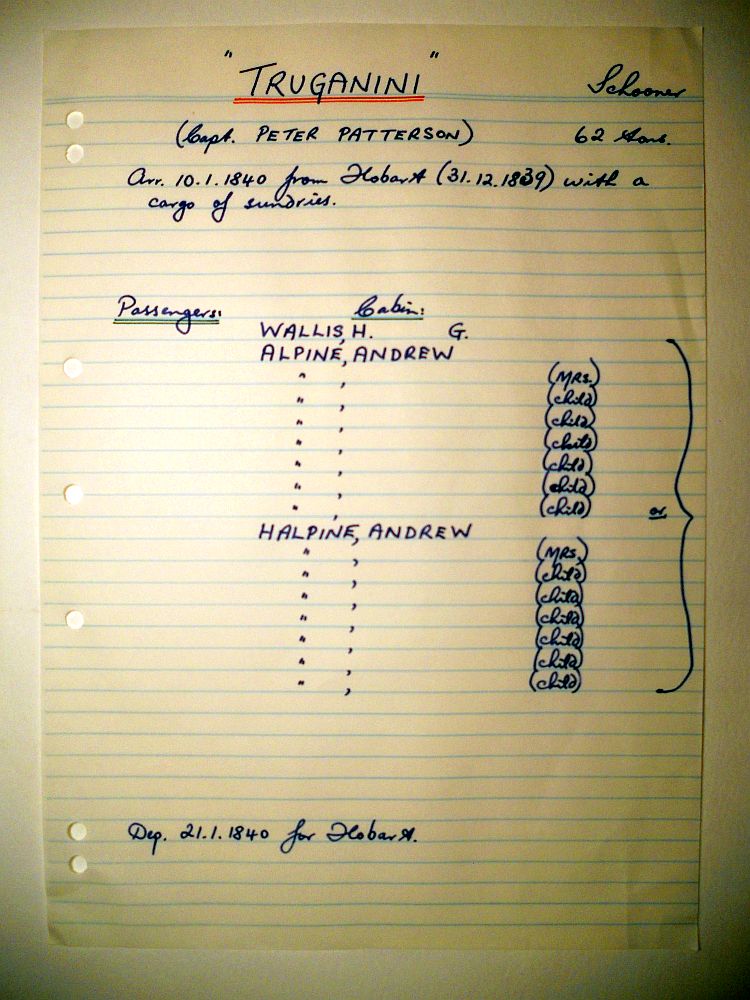 "TRUGANINI" Schooner
(Capt. PETER PATTERSON) 62 tons.
Arr. 10.1.1840 from Hobart (31.12.1839) with a
cargo of sundries.
Passengers: Cabin:
WALLIS, H. G.
ALPINE, ANDREW
" , (MRS.)
" , (child)
" , (child)
" , (child)
" , (child)
" , (child)
" , (child)
or
HALPINE, ANDREW
" , (MRS.)
" , (child)
" , (child)
" , (child)
" , (child)
" , (child)
" , (child)
Dep. 21.1.1840 for Hobart.